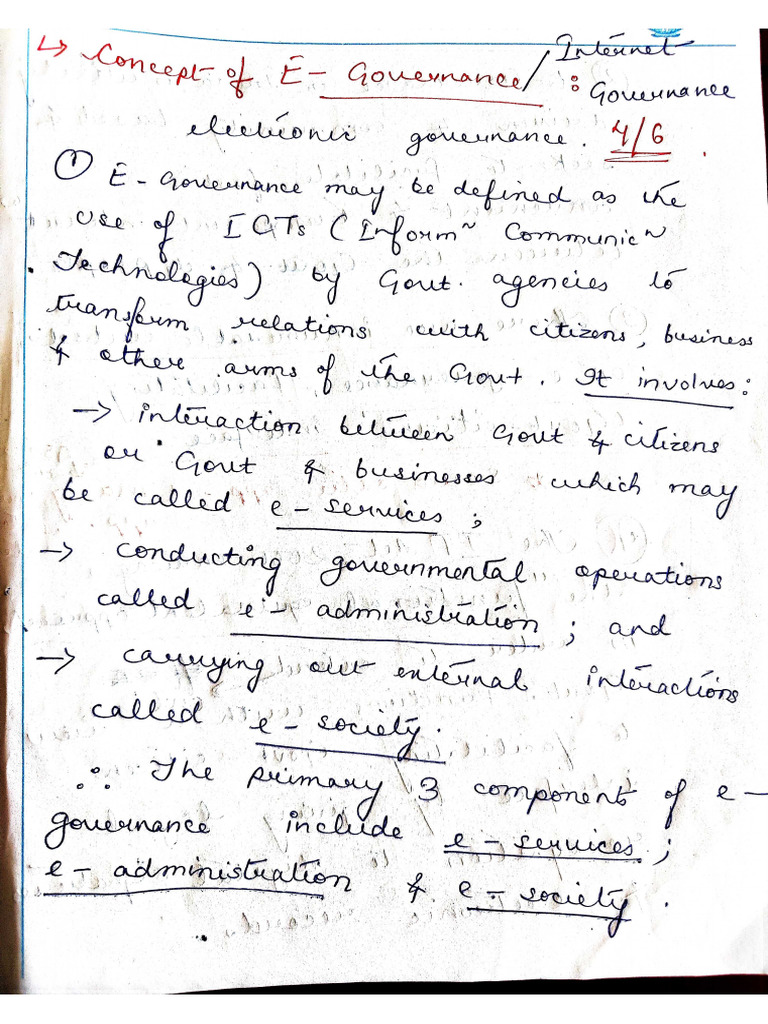 ↳ Concept of E-Governance / Internet Governance :
electronic governance. 4/6.
① E-Governance may be defined as the
use of ICTs (Inform~ Communic~
Technologies) by Govt. agencies to
transform relations with citizens, business
& other arms of the Govt. It involves:
→ interaction between Govt & citizens
or Govt & businesses which may
be called e-services;
→ conducting governmental operations
called e-administration; and
→ carrying out external interactions
called e-society.
∴ The primary 3 component of e-
governance include e-services;
e-administration & e-society.